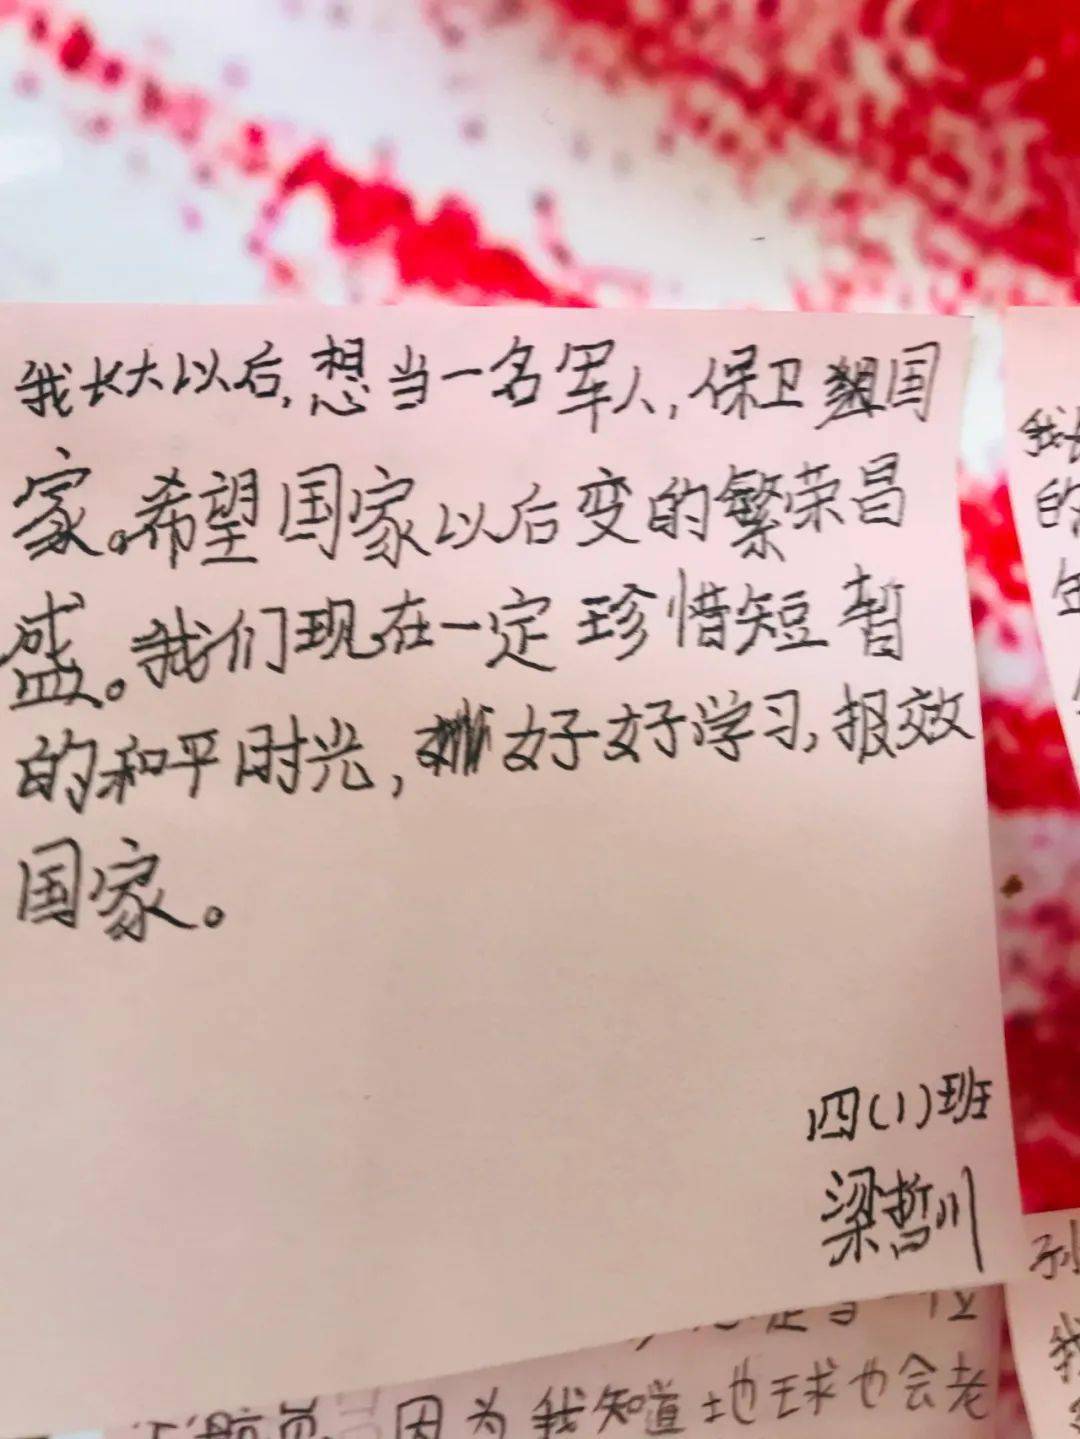 我长大以后,想当一名军人,保卫祖国
家。希望国家以后变的繁荣昌
盛。我们现在一定珍惜短暂
的和平时光,好好学习,报效
国家。
四(1)班
梁哲川
我长
的
孙
我
因为我知道地球也会老